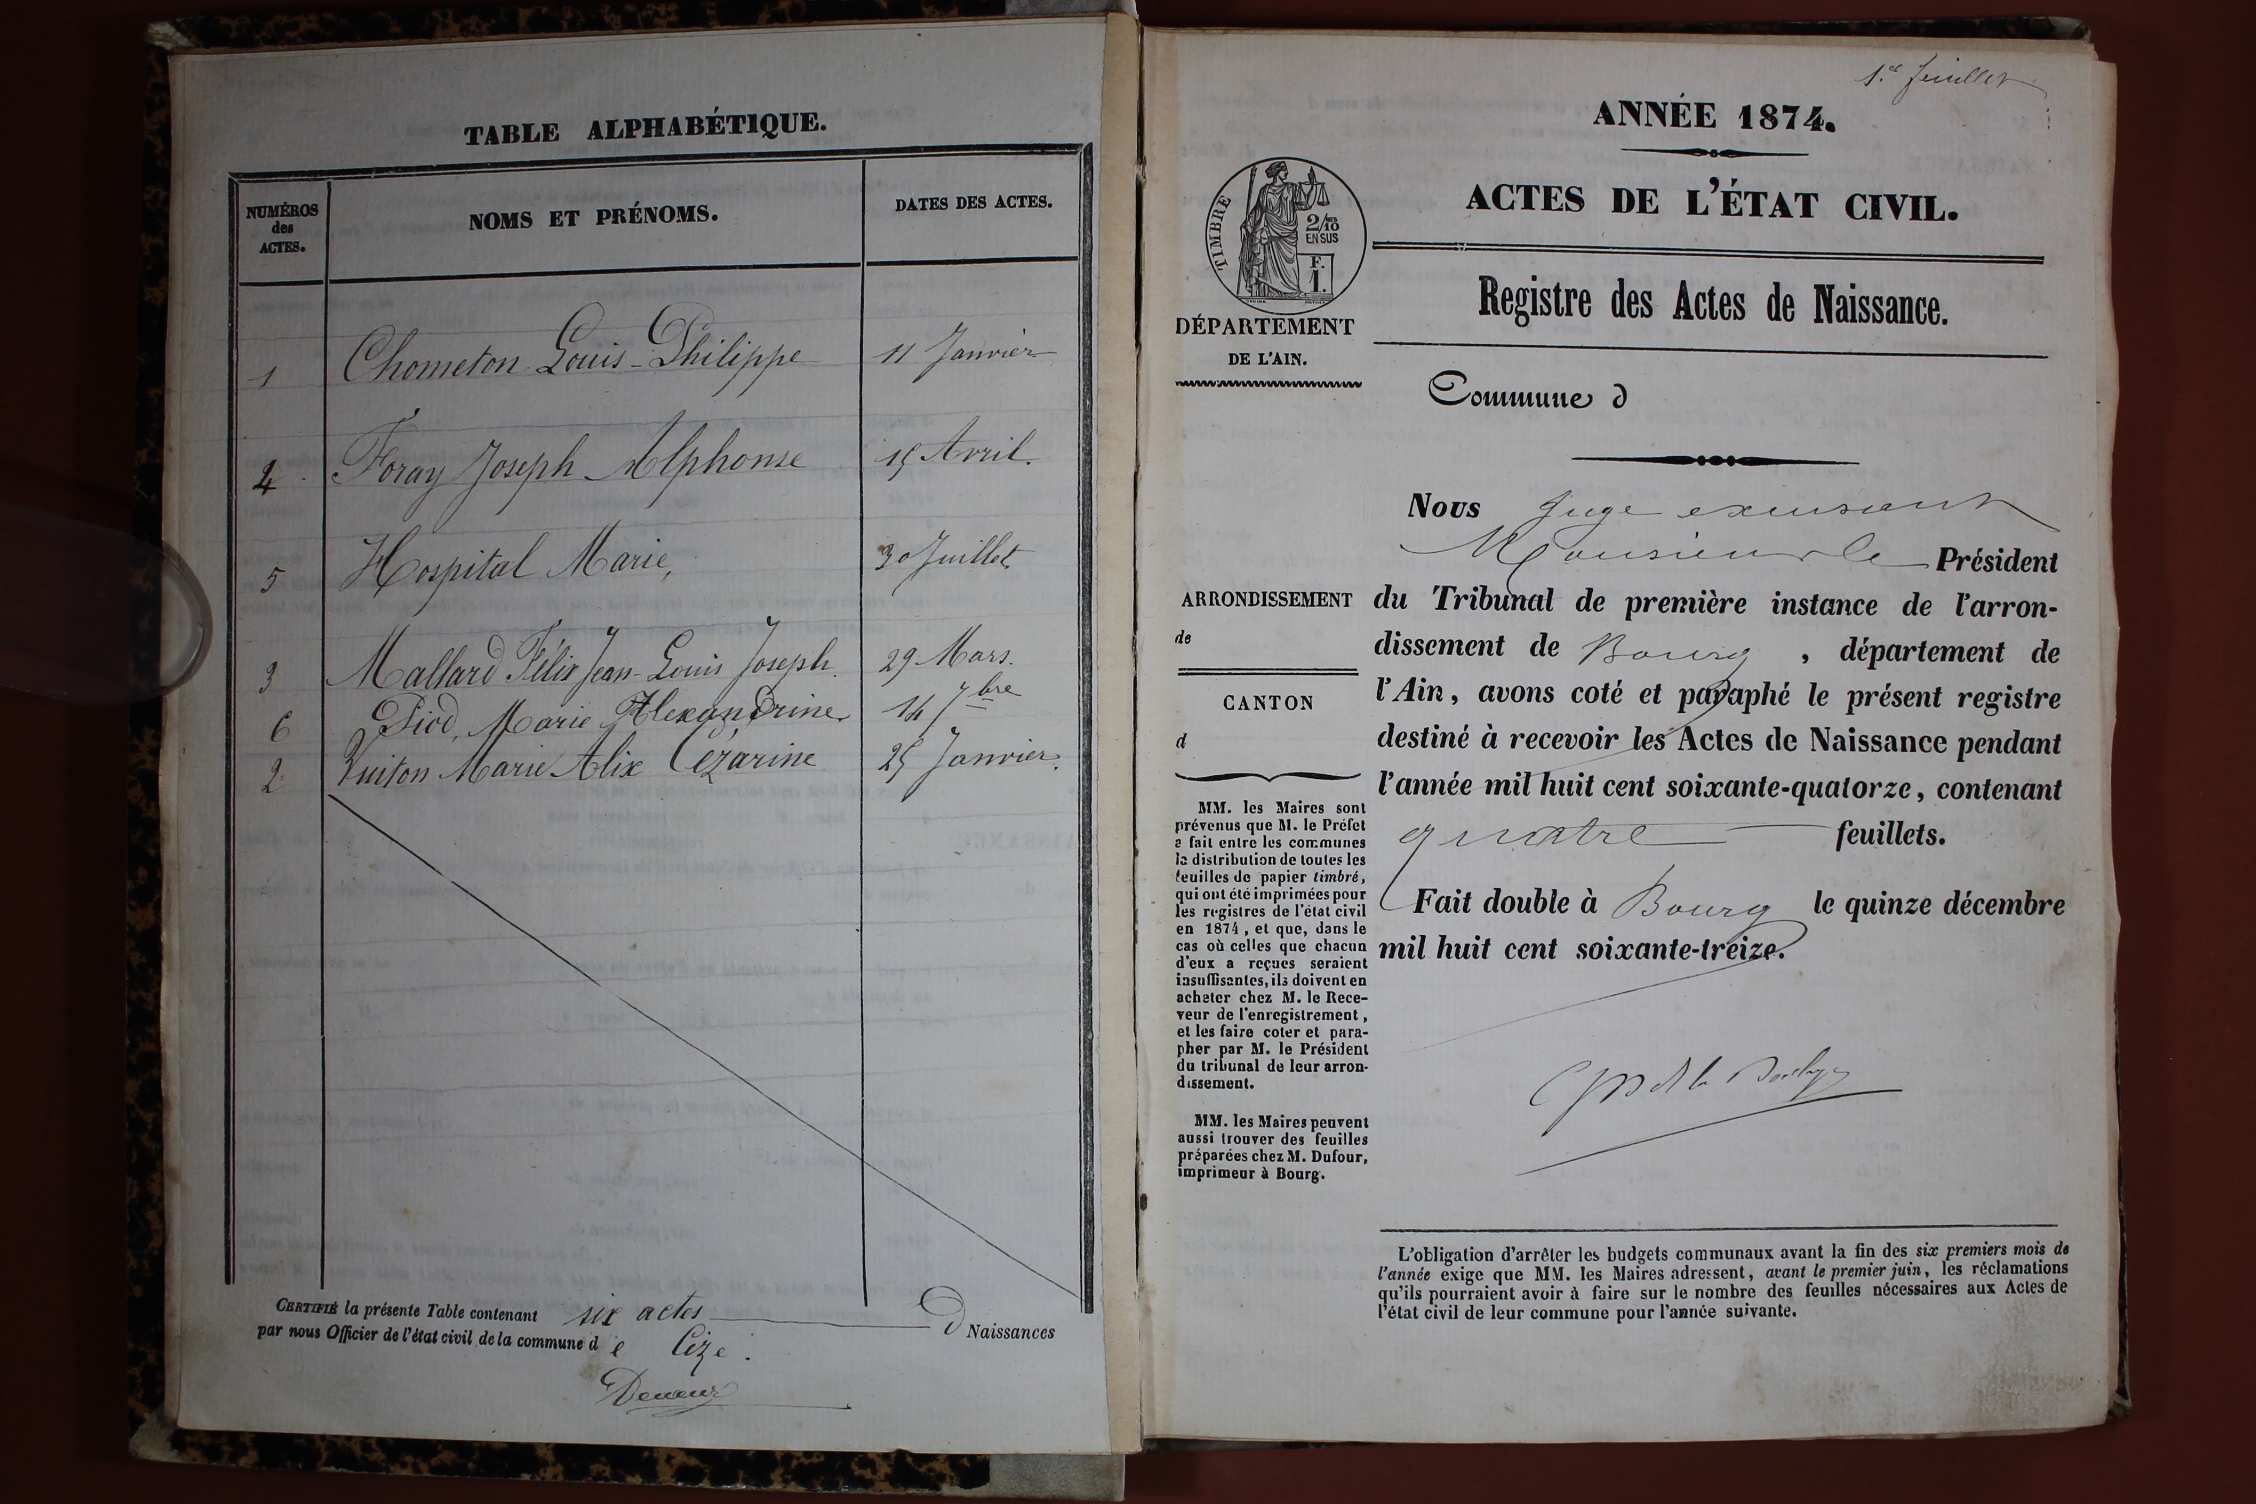 TABLE ALPHABÉTIQUE.
NUMÉROS
des
ACTES.
NOMS ET PRÉNOMS.
DATES DES ACTES.
1 Chometon Louis-Philippe 11 Janvier
4 Foray Joseph Alphonse 15 Avril.
5 Hospital Marie, 30 Juillet
3 Mallard Félix Jean-Louis Joseph. 29 Mars.
6 Piod, Marie Alexandrine 14 7bre
2 Vuiton Marie Alix Cézarine 25 Janvier.
CERTIFIÉ la présente Table contenant six actes d Naissances
par nous Officier de l'état civil de la commune d e Cize.
1er feuillet
ANNÉE 1874.
ACTES DE L'ÉTAT CIVIL.
TIMBRE
2/10
EN SUS
F.
1.
DÉPARTEMENT
DE L'AIN.
Registre des Actes de Naissance.
Commune d
ARRONDISSEMENT
de
CANTON
d
MM. les Maires sont
prévenus que M. le Préfet
a fait entre les communes
la distribution de toutes les
feuilles de papier timbré,
qui ont été imprimées pour
les registres de l'état civil
en 1874, et que, dans le
cas où celles que chacun
d'eux a reçues seraient
insuffisantes, ils doivent en
acheter chez M. le Rece-
veur de l'enregistrement,
et les faire coter et para-
pher par M. le Président
du tribunal de leur arron-
dissement.
MM. les Maires peuvent
aussi trouver des feuilles
préparées chez M. Dufour,
imprimeur à Bourg.
Nous Juge
Monsieur le Président
du Tribunal de première instance de l'arron-
dissement de Bourg, département de
l'Ain, avons coté et paraphé le présent registre
destiné à recevoir les Actes de Naissance pendant
l'année mil huit cent soixante-quatorze, contenant
quatre feuillets.
Fait double à Bourg le quinze décembre
mil huit cent soixante-treize.
L'obligation d'arrêter les budgets communaux avant la fin des six premiers mois de
l'année exige que MM. les Maires adressent, avant le premier juin, les réclamations
qu'ils pourraient avoir à faire sur le nombre des feuilles nécessaires aux Actes de
l'état civil de leur commune pour l'année suivante.